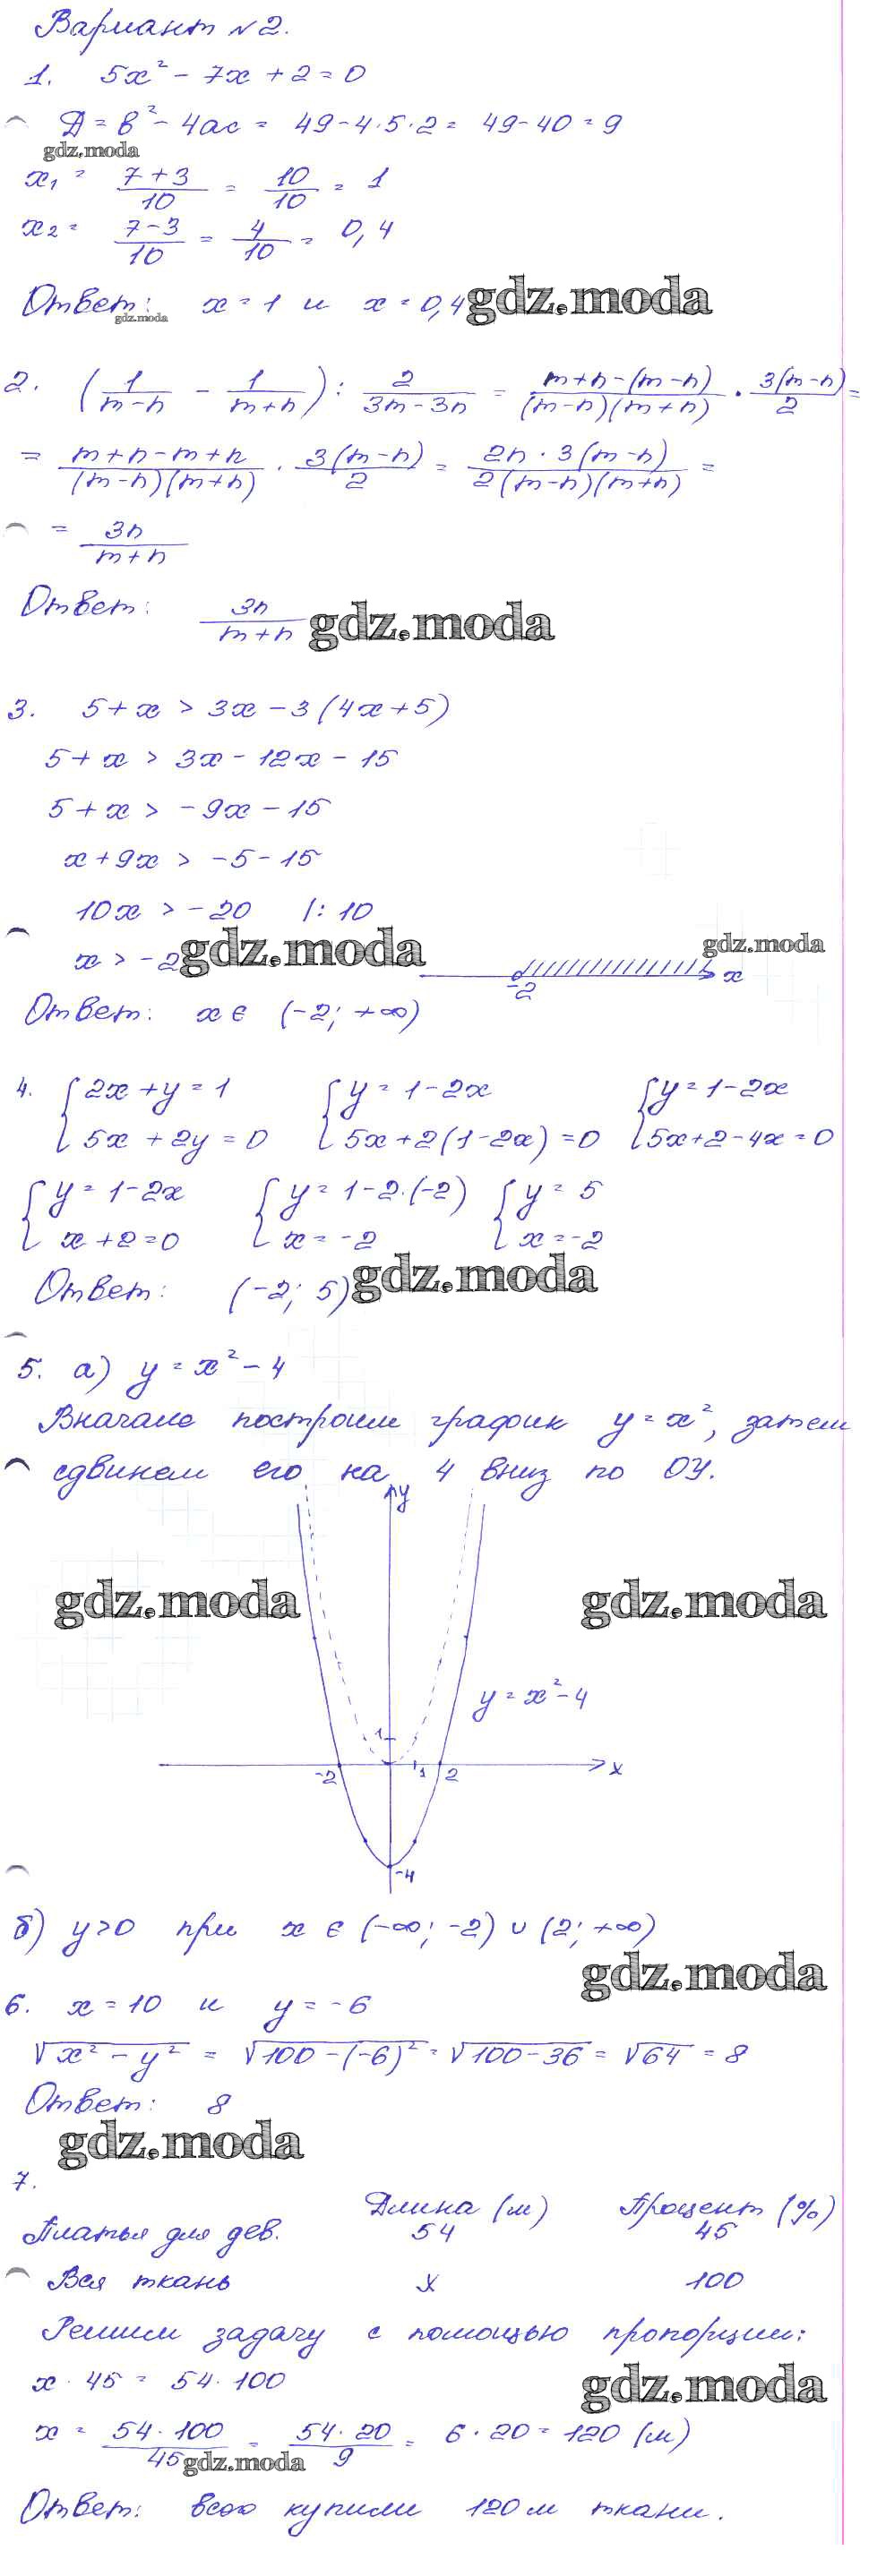 Вариант №2.
1. 5x² - 7x + 2 = 0
Д = в² - 4ас = 49 - 4·5·2 = 49 - 40 = 9
gdz.moda
x₁ = (7+3)/10 = 10/10 = 1
x₂ = (7-3)/10 = 4/10 = 0,4
Ответ: x = 1 и x = 0,4 gdz.moda
gdz.moda
2. (1/(m-n) - 1/(m+n)) : 2/(3m-3n) = (m+n-(m-n))/((m-n)(m+n)) · 3(m-n)/2 =
= (m+n-m+n)/((m-n)(m+n)) · 3(m-n)/2 = (2n·3(m-n))/(2(m-n)(m+n)) =
= 3n/(m+n)
Ответ: 3n/(m+n) gdz.moda
3. 5+x > 3x-3(4x+5)
5+x > 3x-12x-15
5+x > -9x-15
x+9x > -5-15
10x > -20 |:10
x > -2 gdz.moda
gdz.moda
-2 x
Ответ: x ∈ (-2; +∞)
4. { 2x+y=1 { y=1-2x { y=1-2x
5x+2y=0 5x+2(1-2x)=0 5x+2-4x=0
{ y=1-2x { y=1-2·(-2) { y=5
x+2=0 x=-2 x=-2
Ответ: (-2; 5) gdz.moda
5. а) y = x² - 4
Вначале построим график y = x², затем
сдвинем его на 4 вниз по ОУ.
y
gdz.moda gdz.moda
y = x² - 4
1
-2 1 2 x
-4
б) y>0 при x ∈ (-∞; -2) ∪ (2; +∞)
gdz.moda
6. x = 10 и y = -6
√(x² - y²) = √(100 - (-6)²) = √(100-36) = √64 = 8
Ответ: 8
gdz.moda
7.
Длина (м) Процент (%)
Платья для дев. 54 45
Вся ткань x 100
Решим задачу с помощью пропорции:
x · 45 = 54 · 100
gdz.moda
x = (54·100)/45 = (54·20)/9 = 6·20 = 120 (м)
gdz.moda
Ответ: всего купили 120 м ткани.